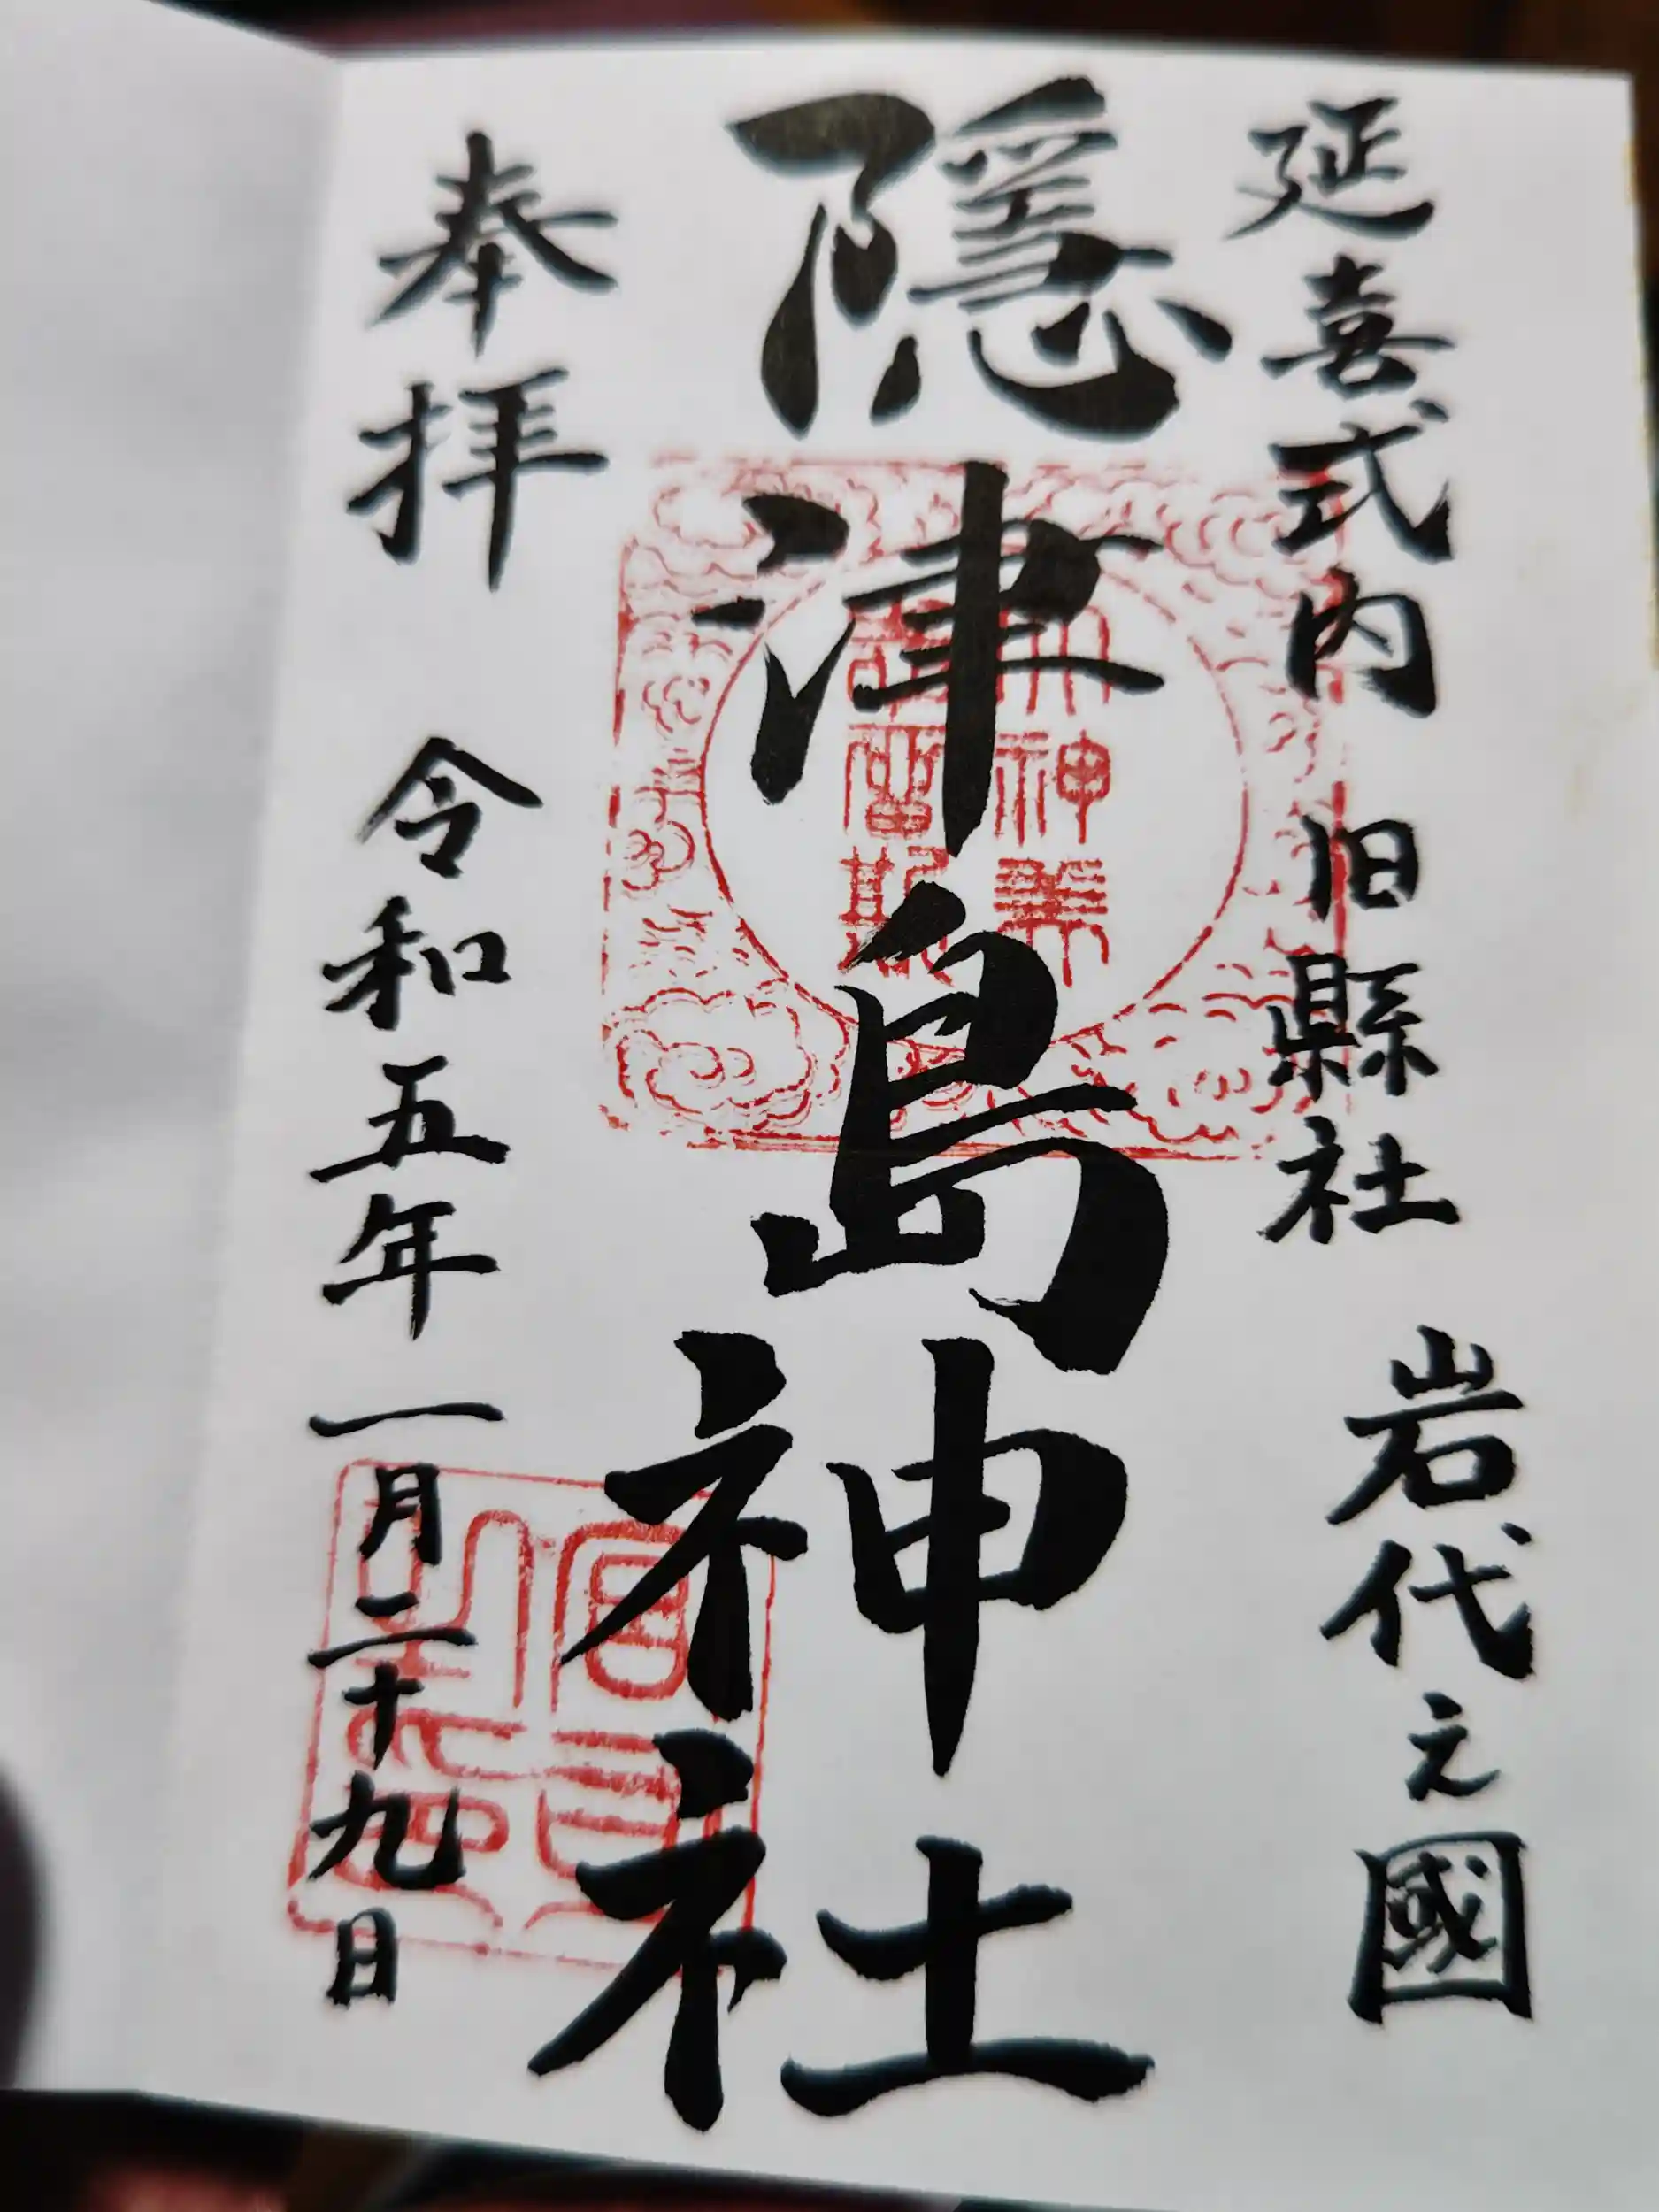 延喜式内 旧縣社 岩代之國
隱津島神社
奉拝 令和五年一月二十九日